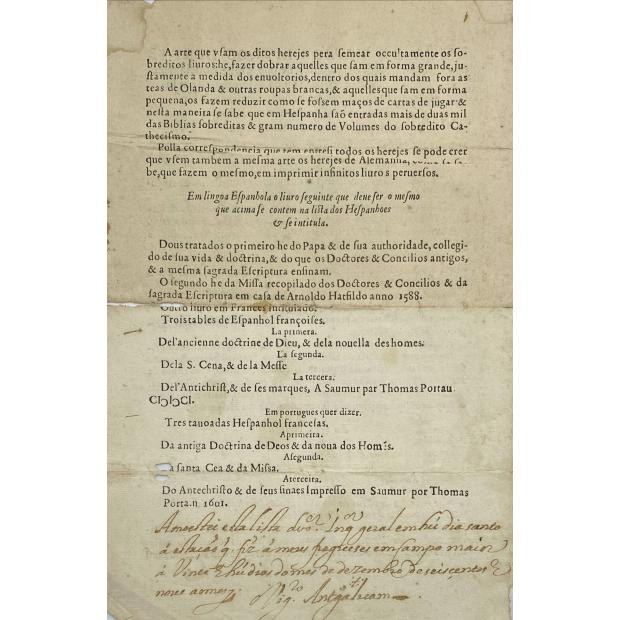 A arte que vsam os ditos herejes pera semear occultamente os so-
breditos liuros:he, fazer dobrar aquelles que sam em forma grande, ju-
stamente a medida dos enuoltorios, dentro dos quais mandam fora as
teas de Olanda & outras roupas brancas, & aquelles que sam em forma
pequena, os fazem reduzir como se fossem maços de cartas de jugar & 
nesta maneira se sabe que em Hespanha saõ entradas mais de duas mil
das Biblias sobreditas & gram numero de Volumes do sobredito Ca-
thecismo.
Polla correspondencia que tem entresi todos os herejes se pode crer
que vsem tambem a mesma arte os herejes de Alemanha, como se sa-
be, que fazem o mesmo, em imprimir infinitos liuros peruersos.
Em lingoa Espanhola o liuro seguinte que deue ser o mesmo
que acima se contem na lista dos Hespanhoes
& se intitula.
Dous tratados o primeiro he do Papa & de sua authoridade, collegi-
do de sua vida & doctrina, & do que os Doctores & Concilios antigos,
& a mesma sagrada Escriptura ensinam.
O segundo he da Missa recopilado dos Doctores & Concilios & da
sagrada Escriptura em casa de Arnoldo Hatfildo anno 1588.
Outro liuro em Frances intitulado.
Trois tables de Espanhol françoises.
La primera.
Del'ancienne doctrine de Dieu, & dela nouella des homes.
La segunda.
Dela S. Cena, & de la Messe
La tercera.
Del'Antichrist, & de ses marques, A Saumur par Thomas Portau
CIↃIↃCI.
Em portugues quer dizer.
Tres tauoadas Hespanhol francesas.
Aprimeira.
Da antiga Doctrina de Deos & da noua dos Homẽs.
Asegunda.
a santa Cea & da Missa.
Aterceira.
Do Antechristo & de seus sinaes Impresso em Saumur por Thomas
Porta.n 1601.
Amoestei esta lista do Inq geral em hũ dia santo
á estação q. fiz á meus fregueses em Campo maior
á Vinte & hũ dias do mes de dezembro de seiscentos &
noue